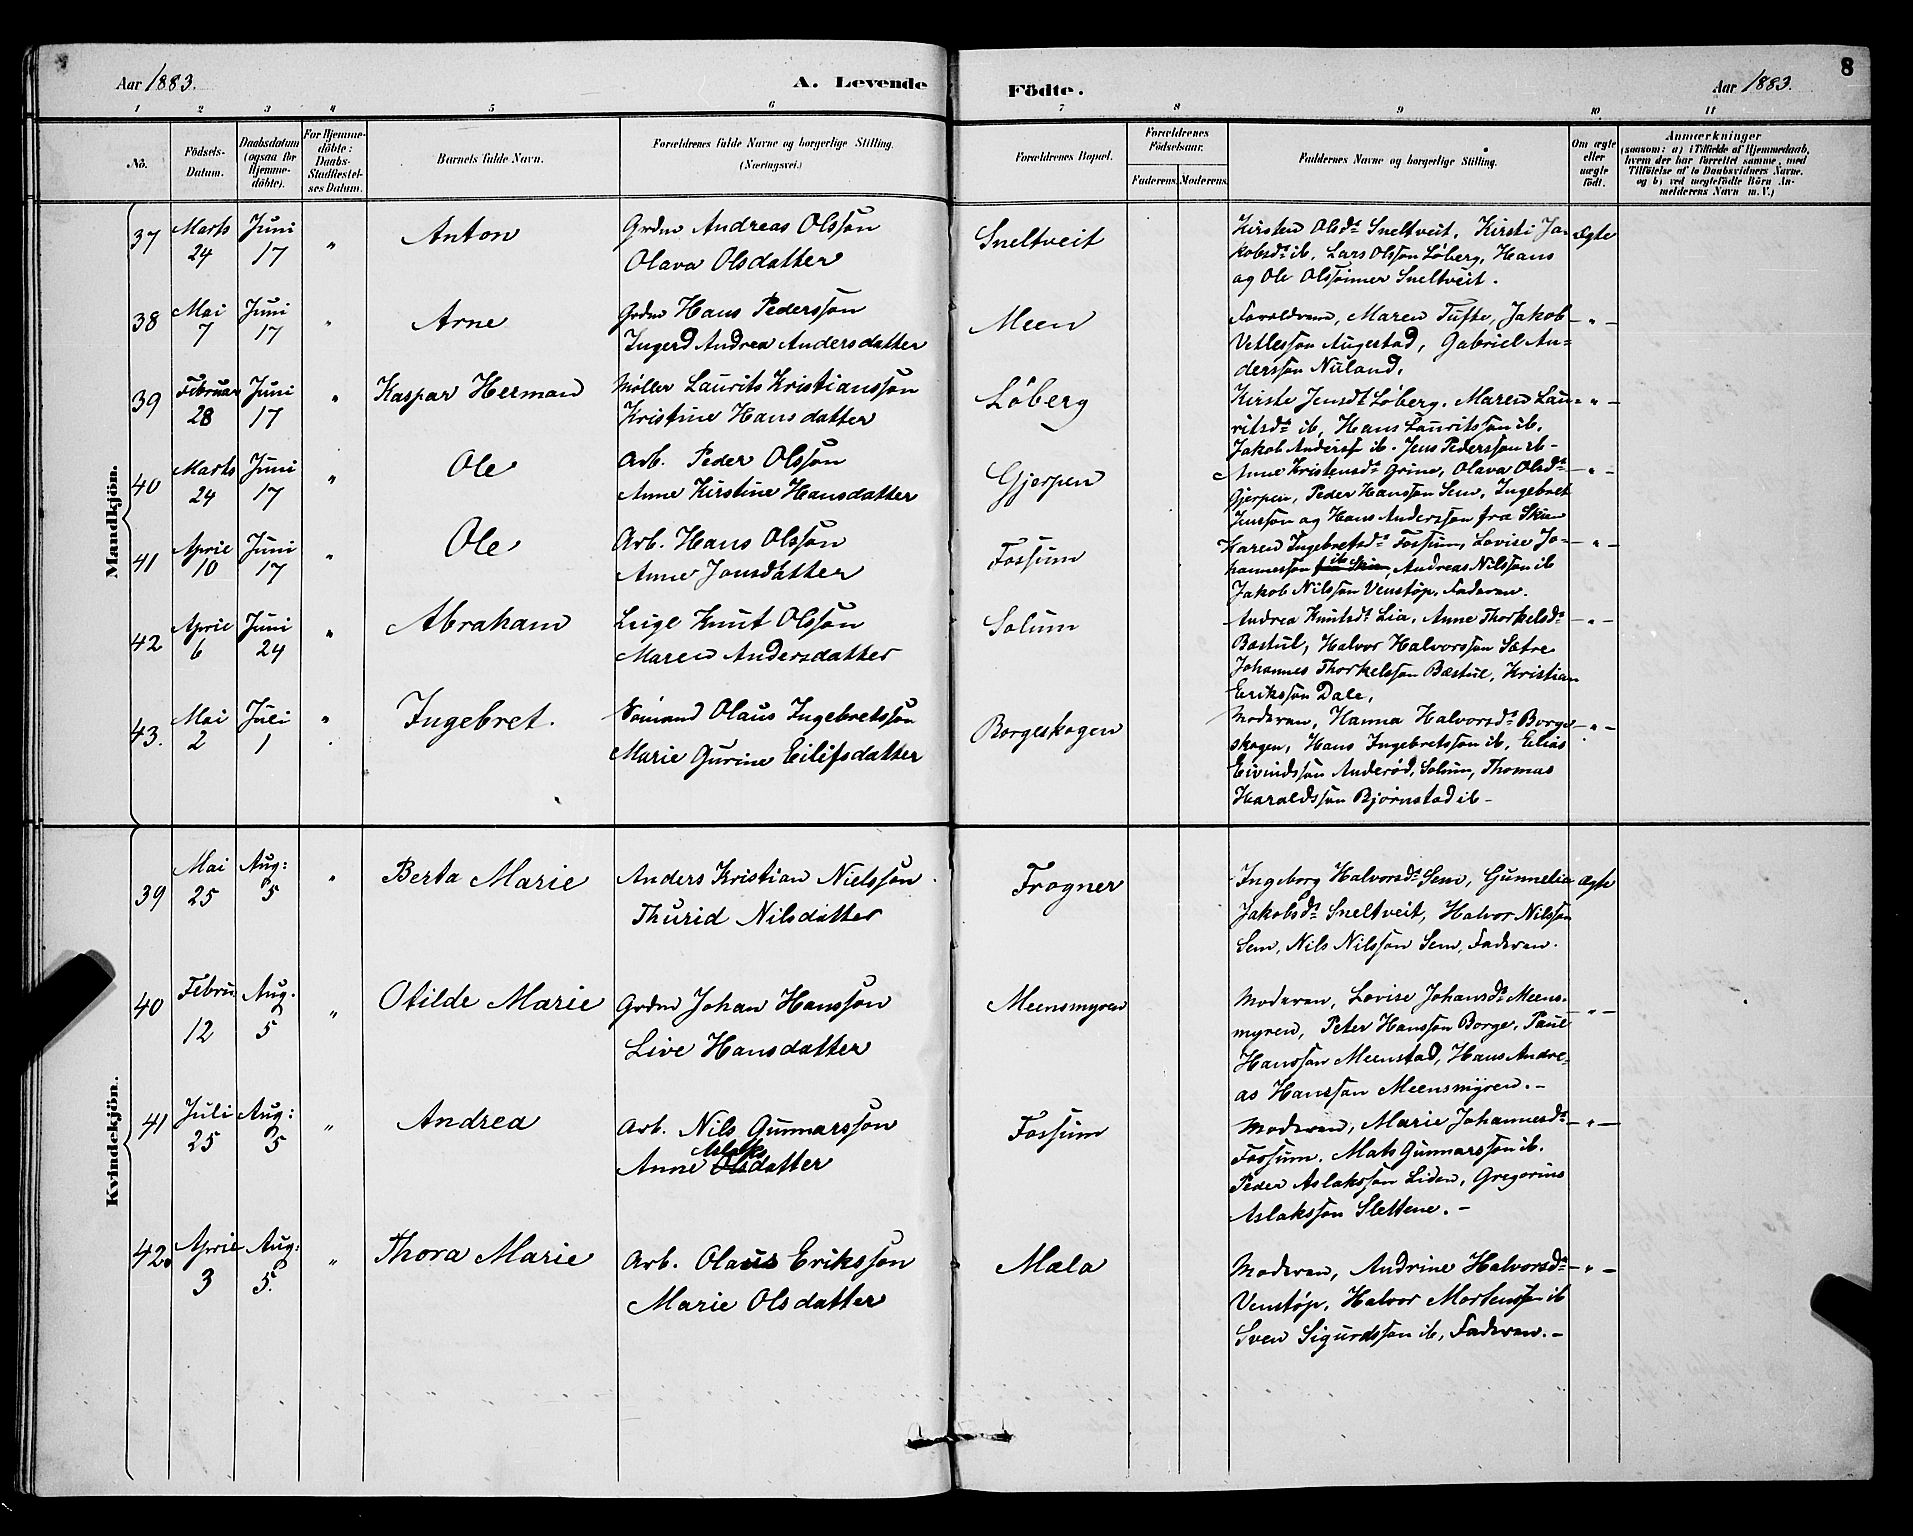 Aar 1883.
A. Levende
Födte.
Aar 1883.
8
1 2 3 4 5 6 7 8 9 10 11
No.
Födsels-
Datum.
Daabsdatum
(ogsaa for
Hjemme-
döbte).
For Hjemme-
döbte:
Daabs-
Stadfæstel-
ses Datum.
Barnets fulde Navn.
Forældrenes fulde Navne og borgerlige Stilling.
(Næringsvei.)
Forældrenes Bopæl.
Forældrenes
Födselsaar.
Faderens. Moderens.
Faddernes Navne og borgerlige Stilling.
Om ægte
eller
uægte
født.
Anmærkninger
(saasom: a) i Tilfælde af Hjemmedaab,
hvem der har forrettet samme, med
Tilföielse af to Daabsvidners Navne,
og b) ved uægtefödte Börn An-
melderens Navn m. V.)
Mandkjön.
37 Marts 24 Juni 17 " Anton
Grdm Andreas Olssøn
Olava Olsdatter
Sneltveit
Kirsten Olsdr Sneltveit, Kirsti Ja-
kobsdr ib, Lars Olssøn Løberg, Hans
og Ole Olssønner Sneltveit.
Ægte
38 Mai 7 Juni 17 " Arne
Grdm Hans Pederssøn
Ingerd Andrea Andersdatter
Meen
Forældrene, Maren Tufte, Jakob
Vetlessøn Augestad, Gabriel An-
derssøn Nuland.
– " –
39 Februar 28 Juni 17 " Kaspar Herman
Møller Laurits Kristianssøn
Kristine Hansdatter
Løberg
Kirste Jensdr Løberg. Maren Lau-
ritsdr ib, Hans Lauritssøn ib,
Jakob Andersf ib. Jens Pederssøn ib –
– " –
40 Marts 24 Juni 17 " Ole
Arb. Peder Olssøn
Anne Kirstine Hansdatter
Gjerpen
Anne Kristensdr Grine, Olava Olsdr
Gjerpen, Peder Hanssøn Sem, Ingebret
Jenssøn og Hans Anderssøn fra Skien
– " –
41 April 10 Juni 17 " Ole
Arb. Hans Olssøn
Anne Jonsdatter
Fossum
Karen Ingebretsdr Fossum, Lovise Jo-
hannessøn ib, Andreas Nilssøn ib
Jakob Nilssøn Venstøp, Faderen.
– " –
42 April 6 Juni 24 " Abraham
Leige Knut Olssøn
Maren Andersdatter
Solum
Andrea Knutsdr Lia, Anne Thorkelsdr
Bøstul, Halvor Halvorssøn Sætre
Johannes Thorkelssøn Bæstul, Kristian
Erikssøn Dale,
– " –
43. Mai 2 Juli 1 " Ingebret.
Sømand Olaus Ingebretssøn
Marie Gurine Eilifsdatter
Borgeskogen
Moderen, Hanna Halvorsdr Borge-
skogen, Hans Ingebretssøn ib, Elias
Eivindssøn Anderød, Solum, Thomas
Haraldssøn Bjørnstad ib –
– " –
Kvindekjön.
39 Mai 25 Aug: 5 " Berta Marie
Anders Kristian Nielssøn
Thurid Nilsdatter
Frogner
Ingeborg Halvorsdr Sem, Gunnelia
Jakobsdr Sneltveit, Halvor Nilssøn
Sem, Nils Nilssøn Sem, Faderen.
Ægte
40 Febru 12 Aug. 5 " Otilde Marie
Grdm Johan Hanssøn
Live Hansdatter
Meensmyren
Moderen, Lovise Johansdr Meens-
myren, Peter Hanssøn Borge, Paul
Hanssøn Meenstad, Hans Andre-
as Hanssøn Meensmyren. –
– " –
41 Juli 25 Aug: 5 " Andrea
Arb. Nils Gunnarssøn
Anne Aslaksdatter
Fossum
Moderen, Marie Johannesdr
Fossum. Mats Gunnarssøn ib.
Peder Aslakssøn Liden, Gregorius
Aslakssøn Slettene. –
– " –
42. April 3 Aug: 5. " Thora Marie
Arb. Olaus Erikssøn
Marie Olsdatter
Mæla
Moderen, Andrine Halvorsdr
Venstøp, Halvor Mortenssøn ib
Sven Sigurdssøn ib, Faderen. –
– " –